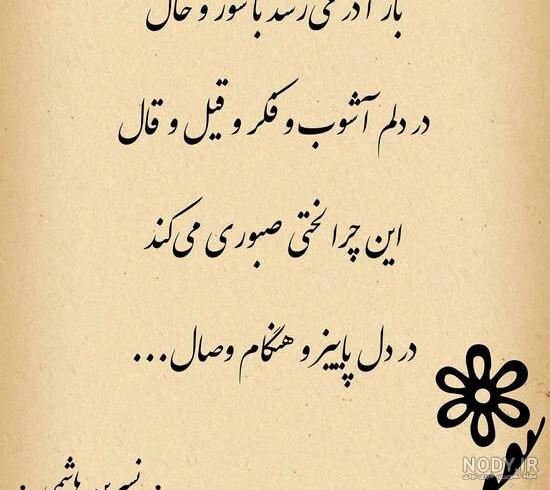 بار آذر می‌رسد با شور و حال
در دلم آشوب و فکر و قیل و قال
این چرا لختی صبوری می‌کند
در دل پاییز و هنگام وصال...
نسرین هاشمی
NODY.IR